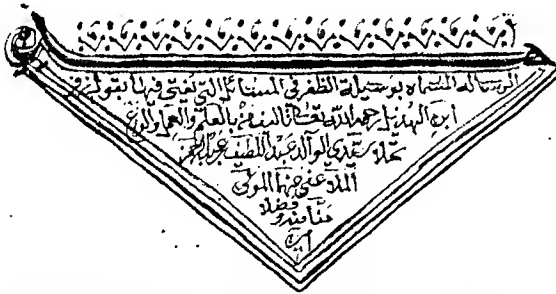 الرسالة المسماة بوسيلة الظفر في المسائل التي يفتى فيها بقول زفر
ابن الهذيل رحمه الله تعالى بالعلم والعمل
سيدي الوالد عبد اللطيف
الملا عفى عنهما المولى
منا منه وفضلا
امين